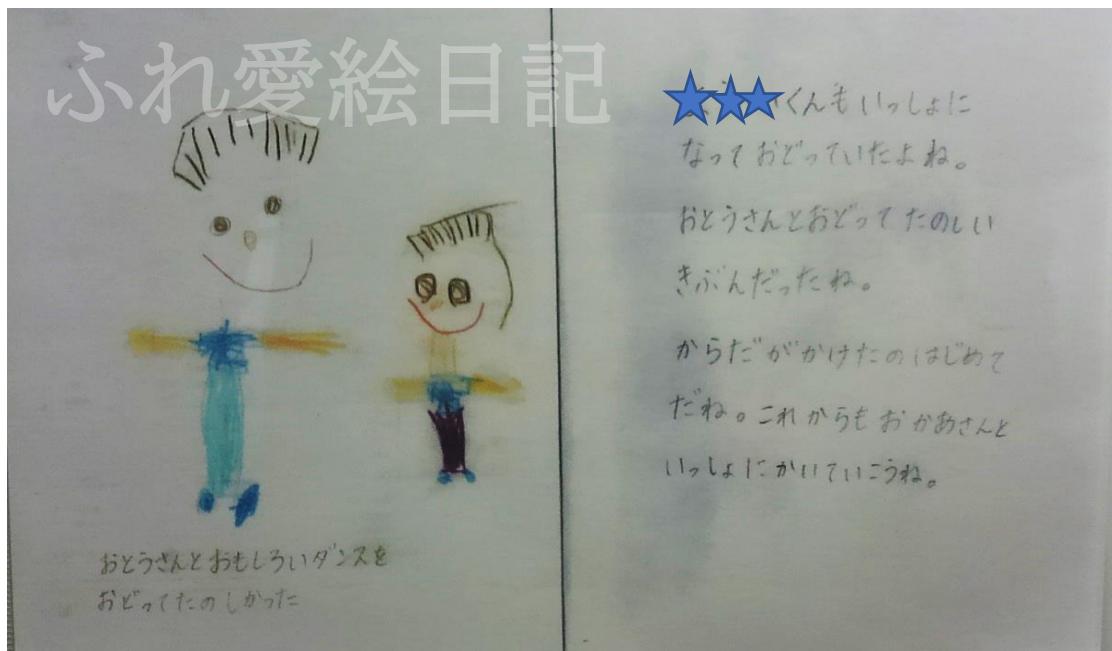 ふれ愛絵日記
おとうさんとおもしろいダンスを
おどってたのしかった
くんもいっしょに
なっておどっていたよね。
おとうさんとおどってたのしい
きぶんだったね。
からだがかけたのはじめて
だね。これからもおかあさんと
いっしょにかいていこうね。